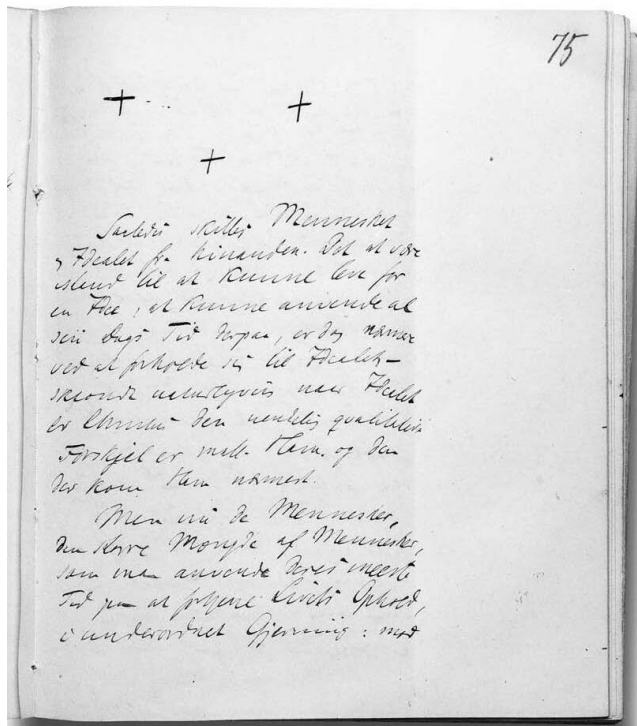 75
Saaledes skilles Mennesket
og Idealet fra hinanden. Det at være
istand til at kunne leve for
en Idee, at kunne anvende al
sin Dags Tid derpaa, er dog nærmere
ved at forholde sig til Idealet –
skjøndt naturligviis naar Idealet
er Christus den uendelig qvalitative
Forskjel er mell. Ham og den
der kom Ham nærmest.
Men nu de Mennesker,
den større Mængde af Mennesker,
som maa anvende deres meeste
Tid paa at fortjene Livets Ophold,
i underordnet Gjerning: mod